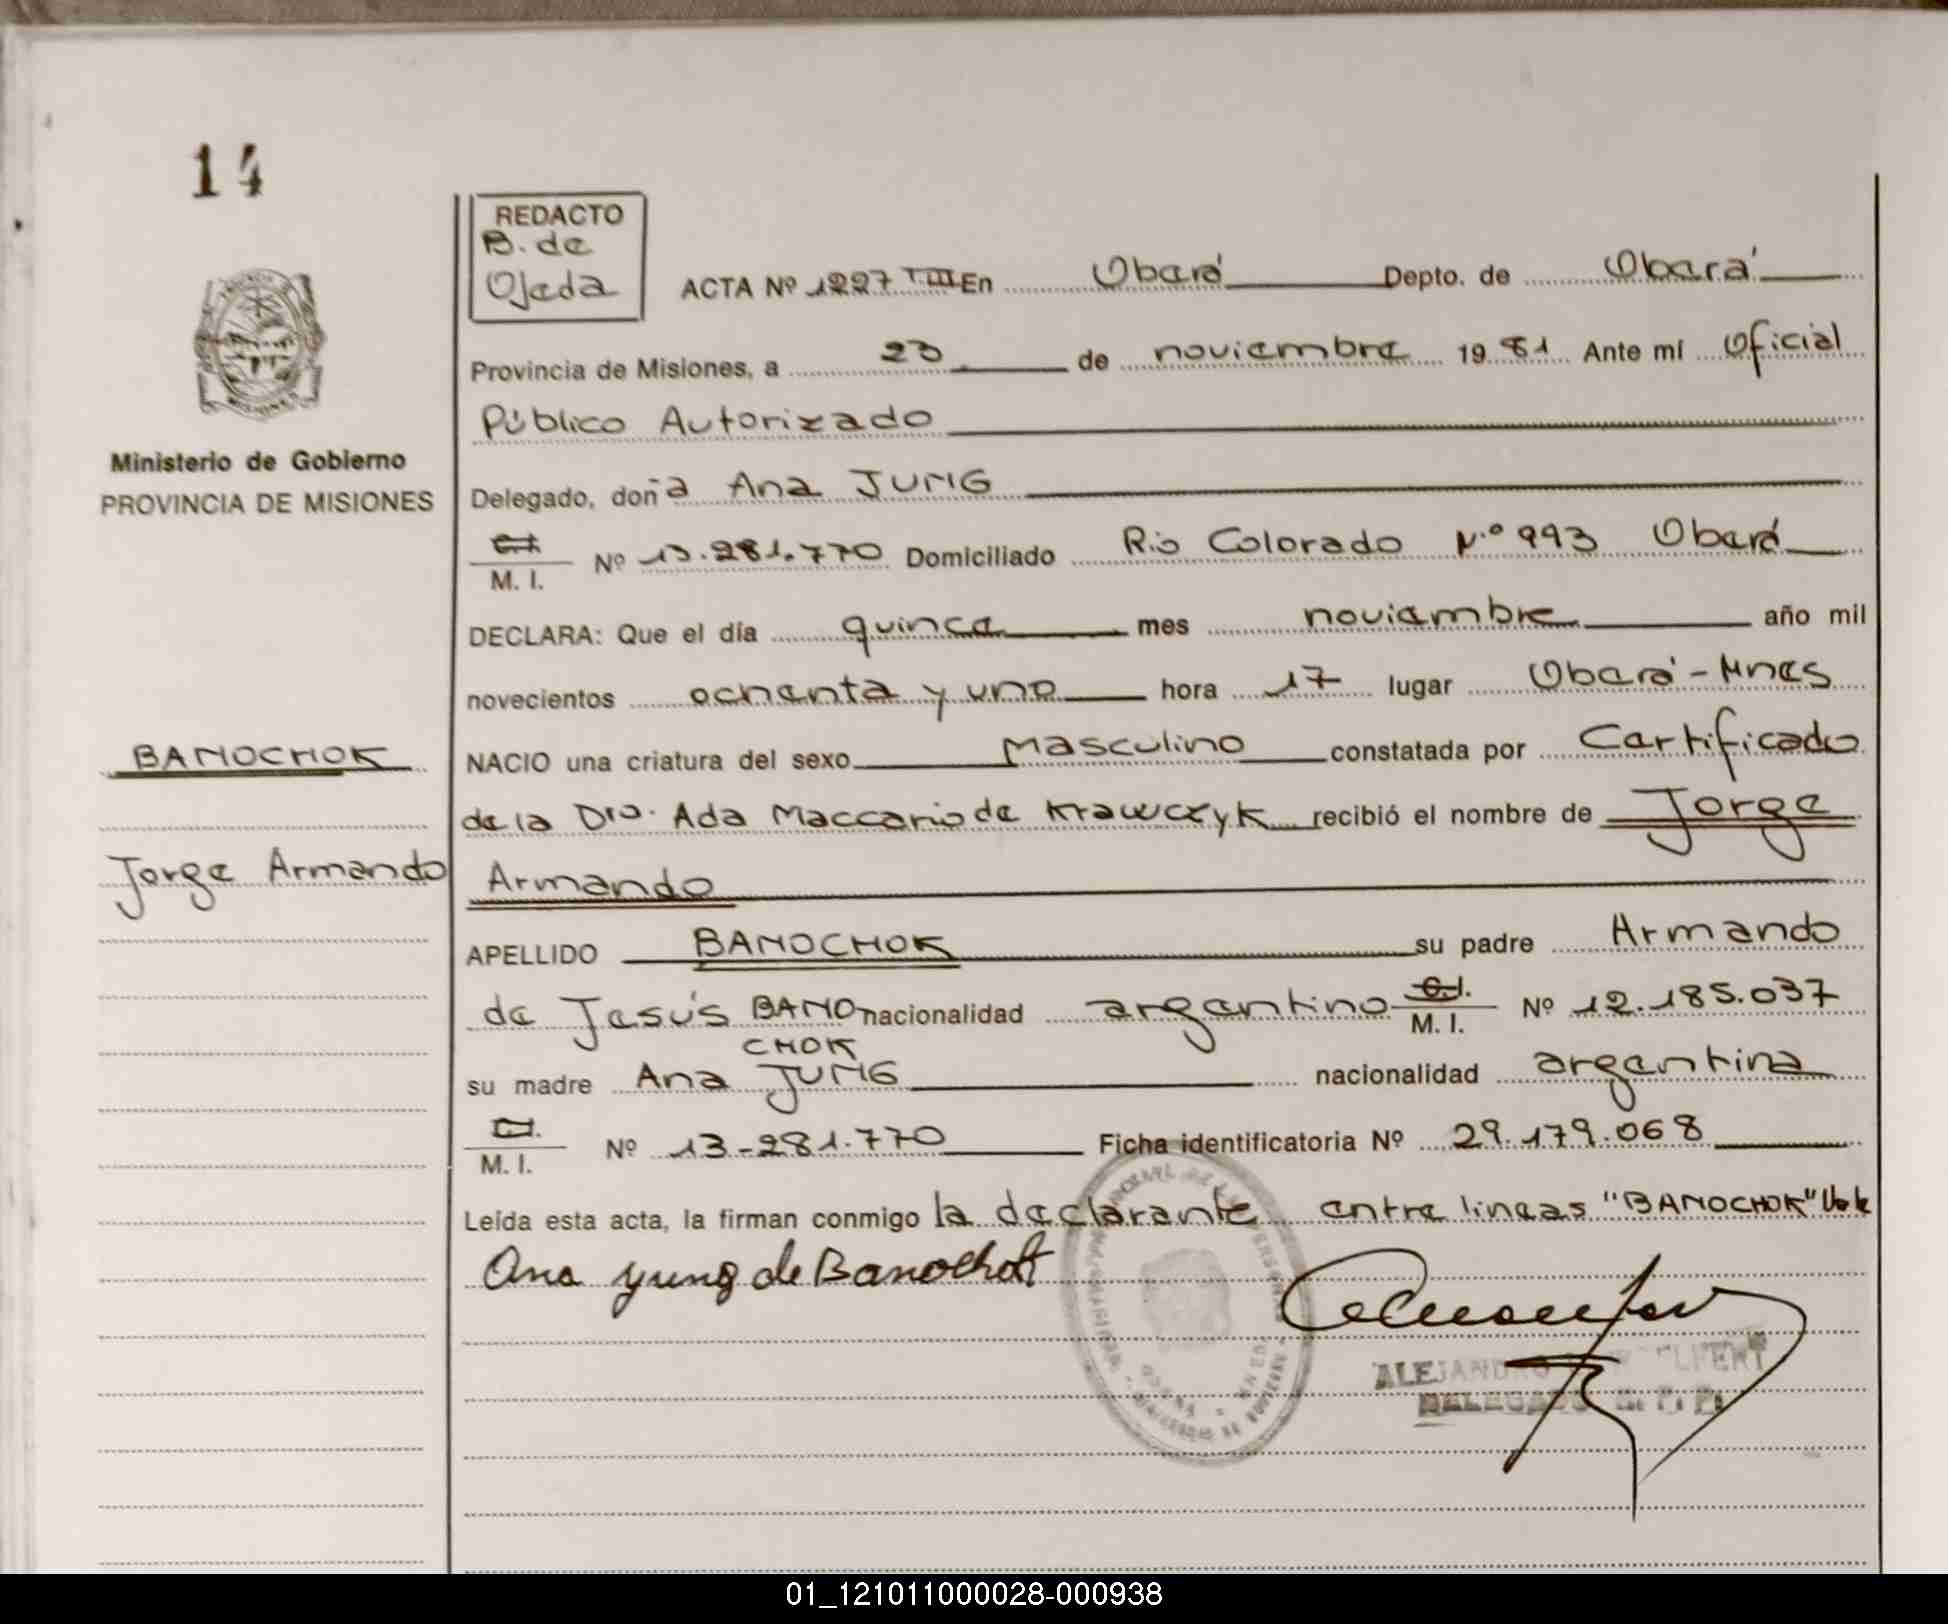 14
REDACTO
B. de
Ojeda
ACTA Nº 1227 TIII En Oberá Depto. de Oberá
Provincia de Misiones, a 23 de noviembre 19 81 Ante mí Oficial
Público Autorizado
Ministerio de Gobierno
PROVINCIA DE MISIONES
Delegado, doña Ana JUNG
C.I.
M. I. Nº 13.281.770 Domiciliado Río Colorado N.º 993 Oberá
DECLARA: Que el día quince mes noviembre año mil
novecientos ochenta y uno hora 17 lugar Oberá - Mnes
BANOCHOK
NACIO una criatura del sexo masculino constatada por Certificado
de la Dra. Ada Maccario de Krawczyk recibió el nombre de Jorge
Jorge Armando
Armando
APELLIDO BANOCHOK su padre Armando
de Jesús BANO nacionalidad argentino C.I. M. I. Nº 12.185.037
CHOK
su madre Ana JUNG nacionalidad argentina
C.I.
M. I. Nº 13-281.770 Ficha identificatoria Nº 29.179.068
Leída esta acta, la firman conmigo la declarante entre lineas "BANOCHOK" Vale
Ana Yung de Banochok
ALEJANDRO
DELEGADO
01_121011000028-000938